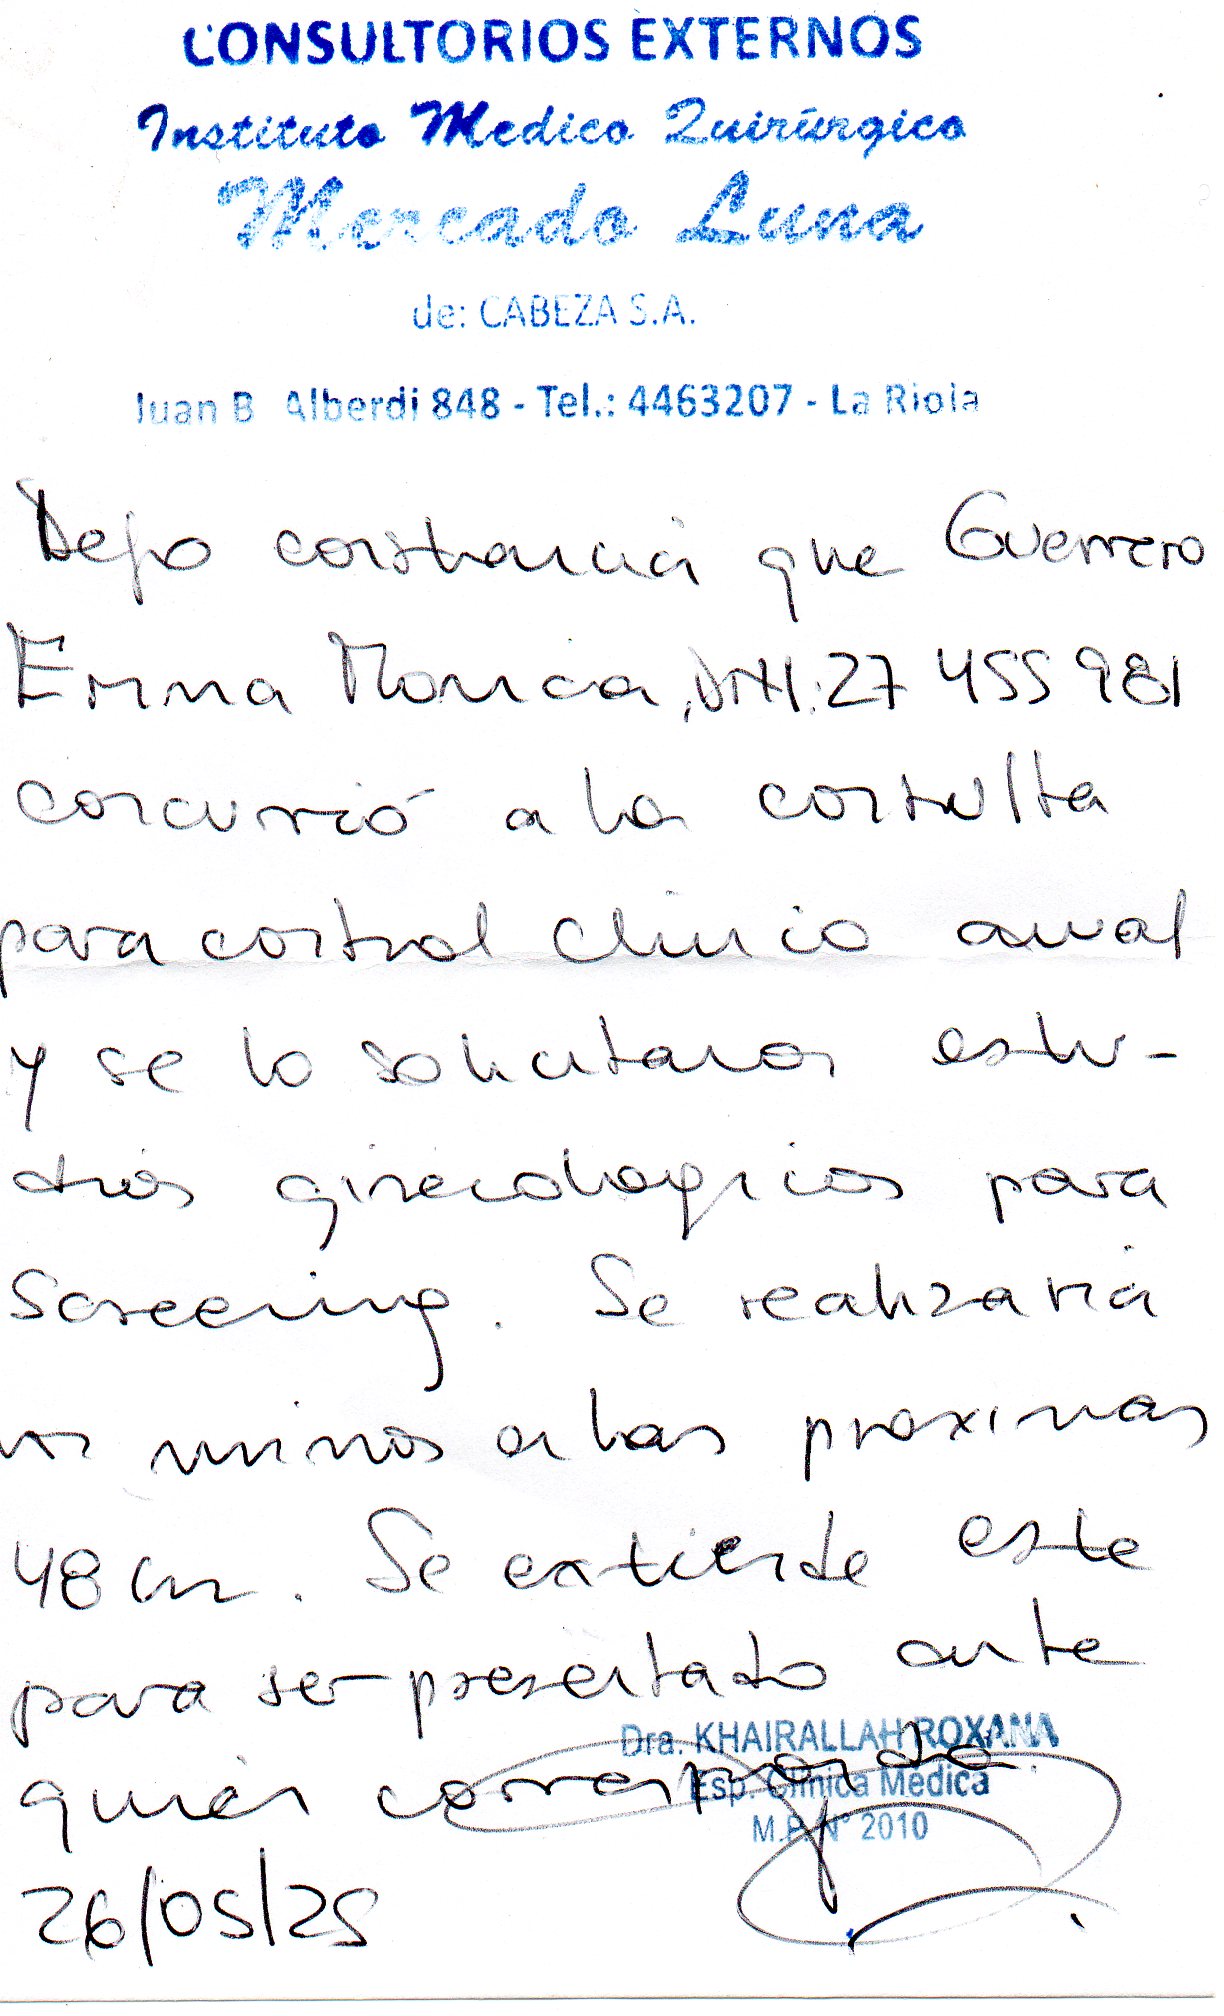 CONSULTORIOS EXTERNOS
Instituto Medico Quirúrgico
Mercado Luna
de: CABEZA S.A.
Juan B Alberdi 848 - Tel.: 4463207 - La Rioja
Dejo constancia que Guerrero
Emma Monica, DNI: 27 455 981
concurrió a la consulta
para control clinico anual
y se lo solicitaron estu-
dios ginecologicos para
Screening. Se realizaria
los mismos a las proximas
48 hs. Se extiende este
para ser presentado ante
quien corresponda
Dra. KHAIRALLAH ROXANA
Esp. Clínica Médica
M.P. N° 2010
26/05/25